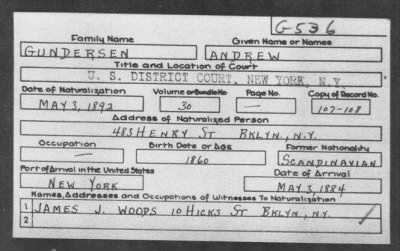 G-536
Family Name Given Name or Names
GUNDERSEN ANDREW
Title and Location of Court
U. S. DISTRICT COURT, NEW YORK, N.Y.
Date of Naturalization Volume or Bundle No. Page No. Copy of Record No.
MAY 3, 1892 30 — 107-108
Address of Naturalized Person
483 HENRY ST BKLYN., N.Y.
Occupation Birth Date or Age Former Nationality
— 1860 SCANDINAVIAN
Port of Arrival in the United States Date of Arrival
NEW YORK MAY 3, 1884
Names, Addresses and Occupations of Witnesses To Naturalization
1 JAMES J. WOODS 10 HICKS ST BKLYN., N.Y.
2